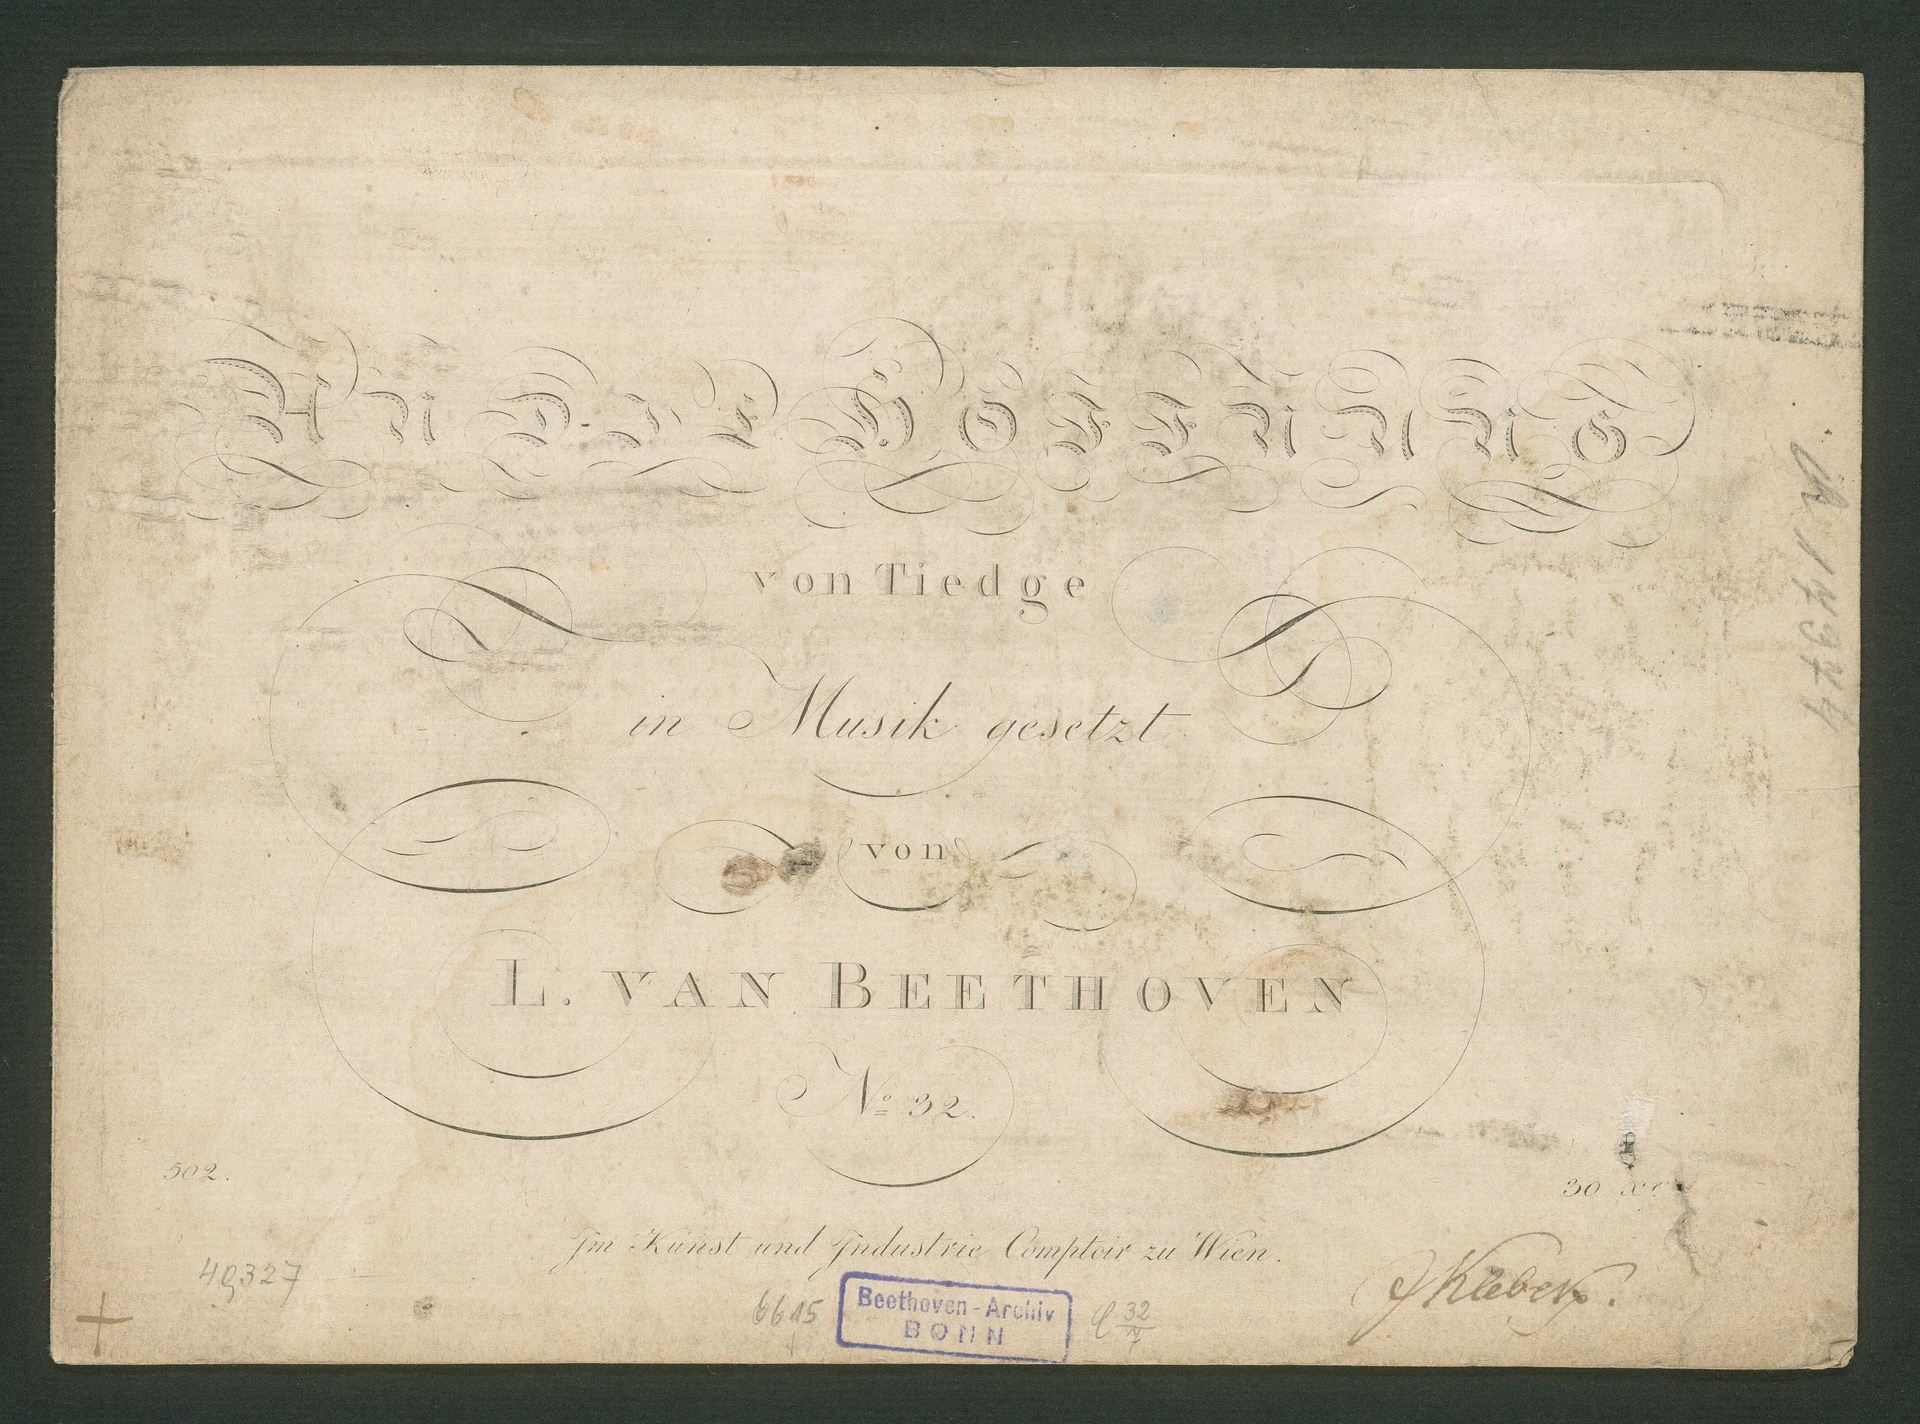 An die Hoffnung
von Tiedge
in Musik gesetzt
von
L. VAN BEETHOVEN
No 32.
502.
30 xr
Im Kunst und Industrie Comptoir zu Wien.
49327
6615
Beethoven-Archiv
BONN
32
7